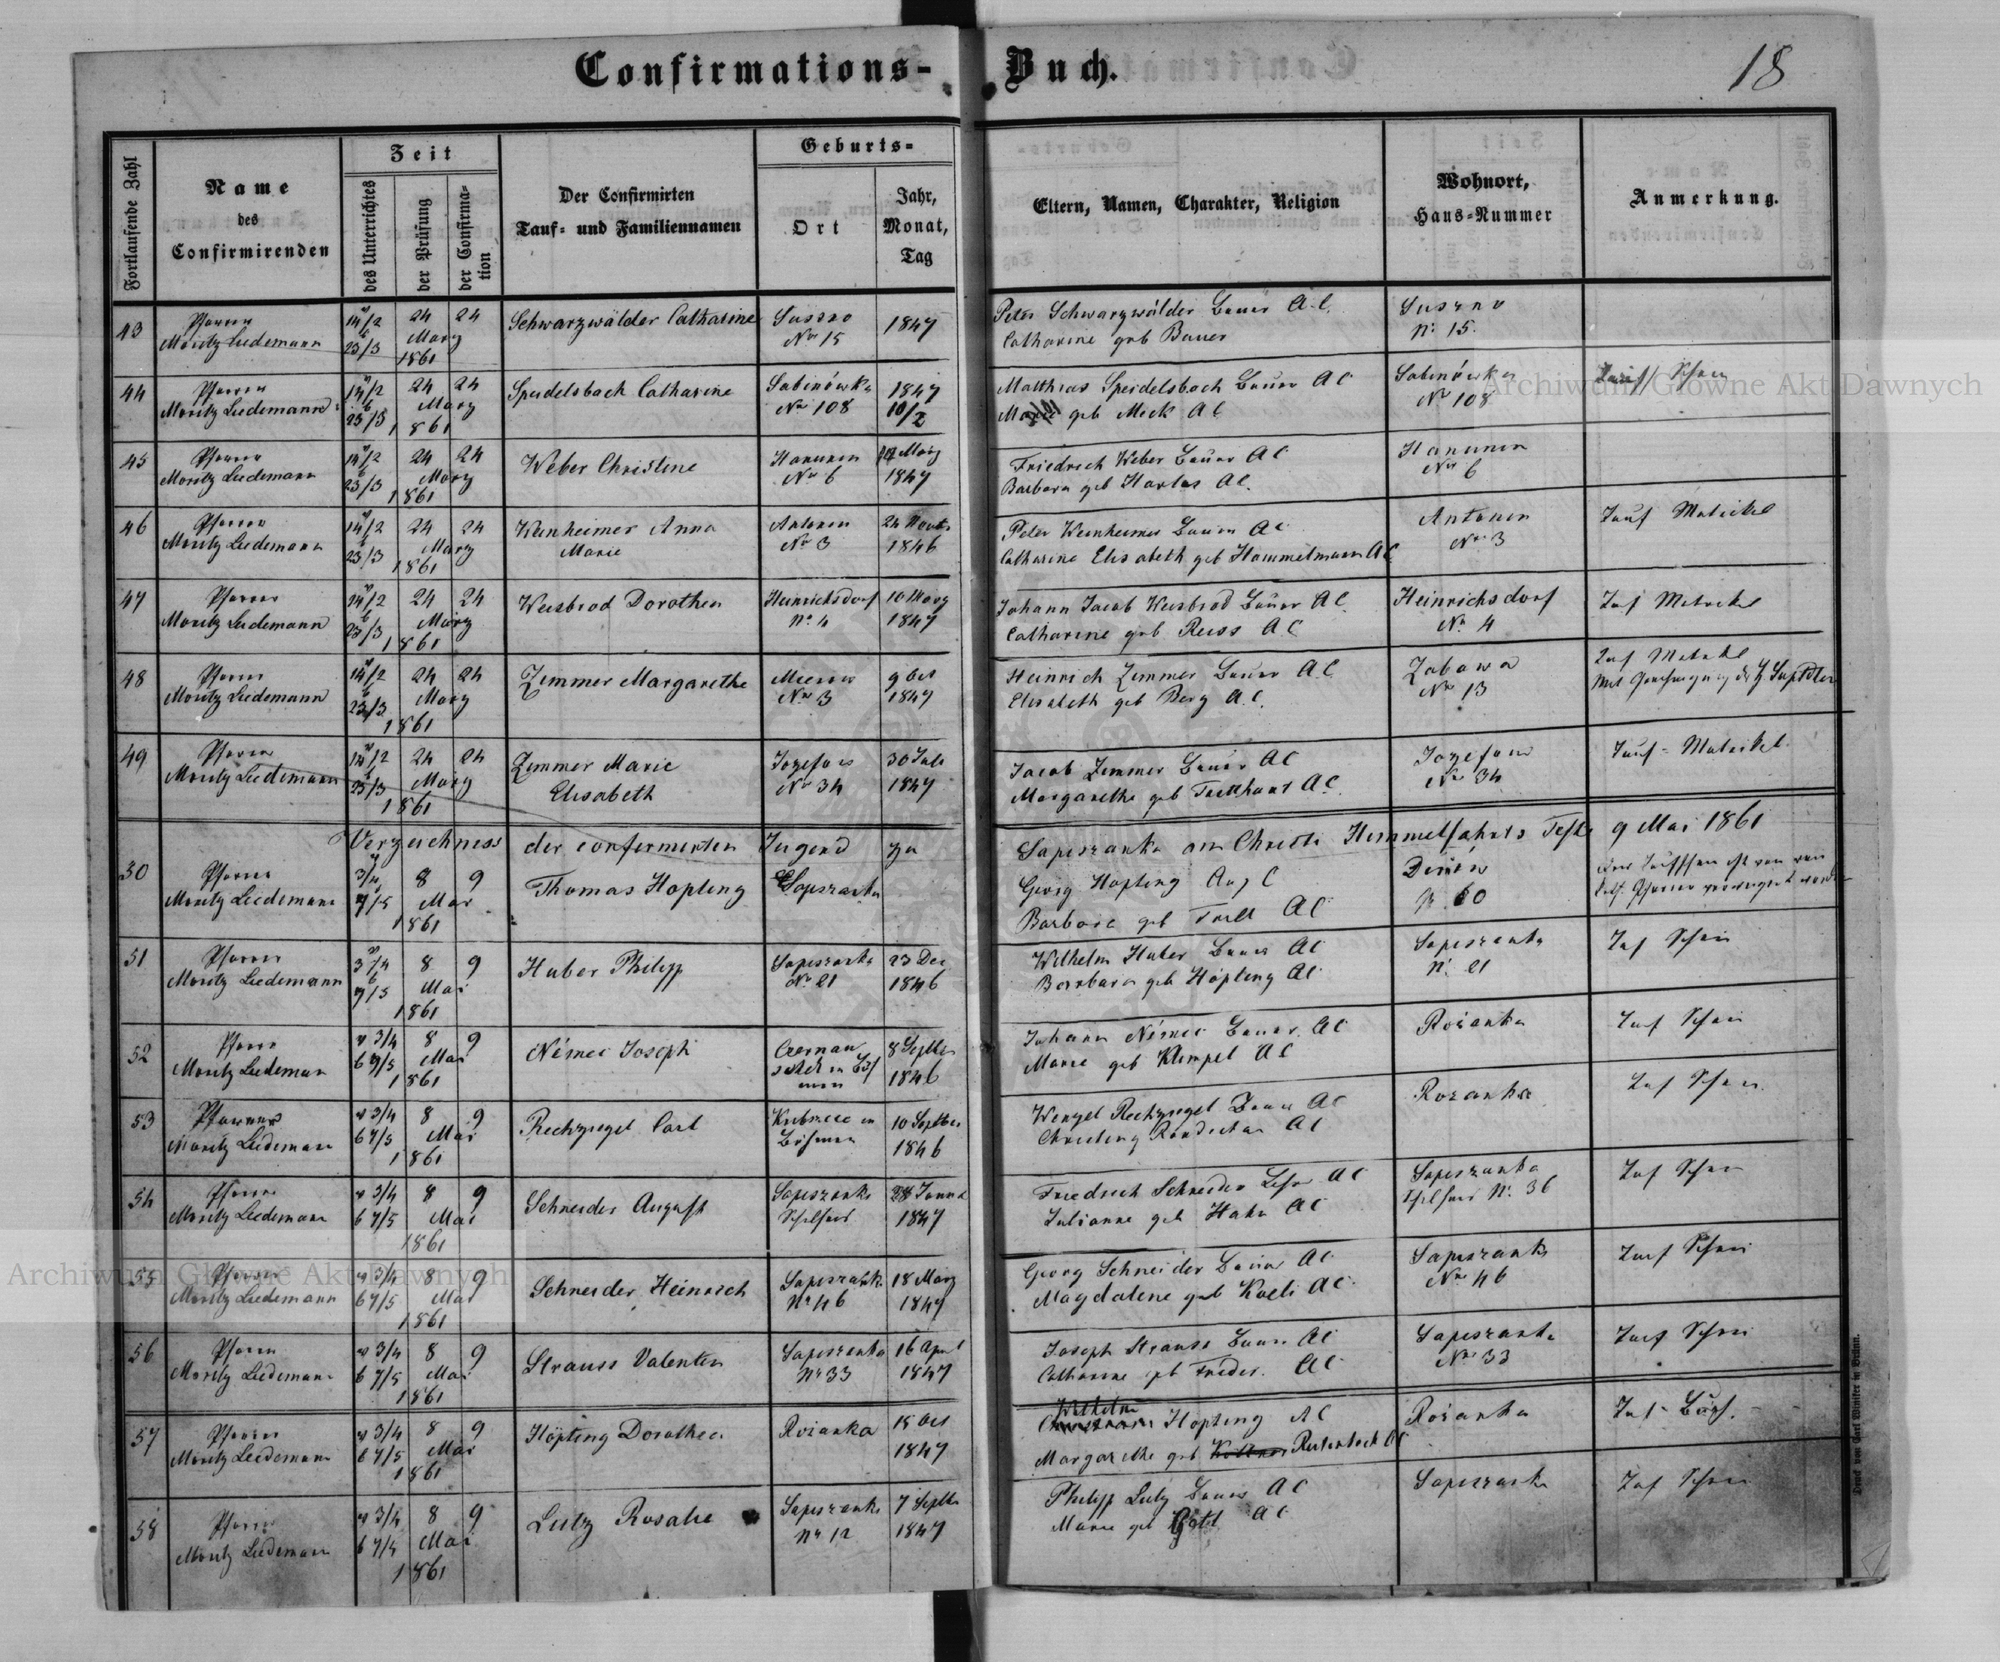 Confirmations-Buch.
18
Fortlaufende Zahl
Name
des
Confirmirenden
Zeit
des Unterrichtes
der Prüfung
der Confirma-
tion
Der Confirmirten
Tauf- und Familiennamen
Geburts-
Ort
Jahr,
Monat,
Tag
Eltern, Namen, Charakter, Religion
Wohnort,
Haus-Nummer
Anmerkung.
43 Pfarrer 14/2 24 24 Schwarzwälder Catharine 1847 Peter Schwarzwälder Bauer A.C.
Moritz Liedemann 23/3 März No 15 Catharine geb Bauer No 15.
1861
44 Pfarrer 14/2 24 24 Speidelsbach Catharine Sabinówka 1847 Matthias Speidelsbach Bauer AC Sabinówka Taufschein
Moritz Liedemann 23/3 März No 108 10/2 Marie geb Meck AC No 108
1861
45 Pfarrer 14/2 24 24 Weber Christine Hanunin März Friedrich Weber Bauer AC Hanunin
Moritz Liedemann 23/3 März No 6 1847 Barbara geb AC. No 6
1861
46 Pfarrer 14/2 24 24 Weinheimer Anna Antonin 24 Peter Weinheimer Bauer AC Antonin Tauf Matrikel
Moritz Liedemann 23/3 März Marie No 3 1846 Catharine Elisabeth geb Hammelmann AC No 3
1861
47 Pfarrer 14/2 24 24 Weisbrod Dorothea Heinrichsdorf 10 März Johann Jacob Weisbrod Bauer AC. Heinrichsdorf Tauf Matrikel
Moritz Liedemann 23/3 März No 4 1847 Catharine geb Reiss AC No. 4
1861
48 Pfarrer 14/2 24 24 Zimmer Margarethe 9 Oct Heinrich Zimmer Bauer A.C. Zabawa Tauf Matrikel
Moritz Liedemann 23/3 März No 3 1847 Elisabeth geb Berg A.C. No 13 Mit
1861
49 Pfarrer 14/2 24 24 Zimmer Marie Jozefow 30 Juli Jacob Zimmer Bauer AC Jozefow Tauf-Matrikel.
Moritz Liedemann 23/3 März Elisabeth No 34 1847 Margarethe geb AC. No 34
1861
Verzeichniss der confirmirten Jugend zu Sapieszanka am Christi Himmelfahrts Feste 9 Mai 1861
50 Pfarrer 3/4 8 9 Thomas Höpting Sapieszanka Georg Höpting Aug C
Moritz Liedemann 7/5 Mai Barbara geb AC N. 60
1861
51 Pfarrer 3/4 8 9 Huber Philipp Sapieszanka 23 Dec Wilhelm Huber Bauer AC Sapieszanka Tauf Schein
Moritz Liedemann 7/5 Mai No 21 1846 Barbara geb Höpting AC N. 21
1861
52 Pfarrer v 3/4 8 9 Némec Joseph 8 Septber Johann Némec Bauer AC Rożanka Tauf Schein
Moritz Liedemann b 7/5 Mai 1846 Marie geb Klimpel AC
1861
53 Pfarrer v 3/4 8 9 Rechziegel Carl 10 Septber Wenzel Rechziegel Bauer AC Rożanka Tauf Schein.
Moritz Liedemann b 7/5 Mai Böhmen 1846 AC
1861
54 Pfarrer v 3/4 8 9 Schneider August Sapieszanka 28 Friedrich Schneider AC Sapieszanka Tauf Schein
Moritz Liedemann b 7/5 Mai 1847 Julianne geb AC No. 36
1861
55 Pfarrer v 3/4 8 9 Schneider Heinrich Sapieszanka 18 März Georg Schneider Bauer AC Sapieszanka Tauf Schein
Moritz Liedemann b 7/5 Mai No 46 1847 Magdalene geb AC No 46
1861
56 Pfarrer v 3/4 8 9 Strauss Valentin Sapieszanka 16 April Joseph Strauss Bauer AC Sapieszanka Tauf Schein
Moritz Liedemann b 7/5 Mai No 33 1847 Catharine geb AC No 33
1861
57 Pfarrer v 3/4 8 9 Höpting Dorothea Rożanka 15 Oct Wilhelm Höpting AC Rożanka
Moritz Liedemann b 7/5 Mai 1847 Margarethe geb AC
1861
58 Pfarrer v 3/4 8 9 Lutz Rosalie Sapieszanka 7 Septber Philipp Lutz Bauer AC Sapieszanka Tauf Schein
Moritz Liedemann b 7/5 Mai No 12 1847 Marie geb AC
1861
Druck von Carl Winiker in Brünn.
Archiwum Główne Akt Dawnych
Archiwum Główne Akt Dawnych